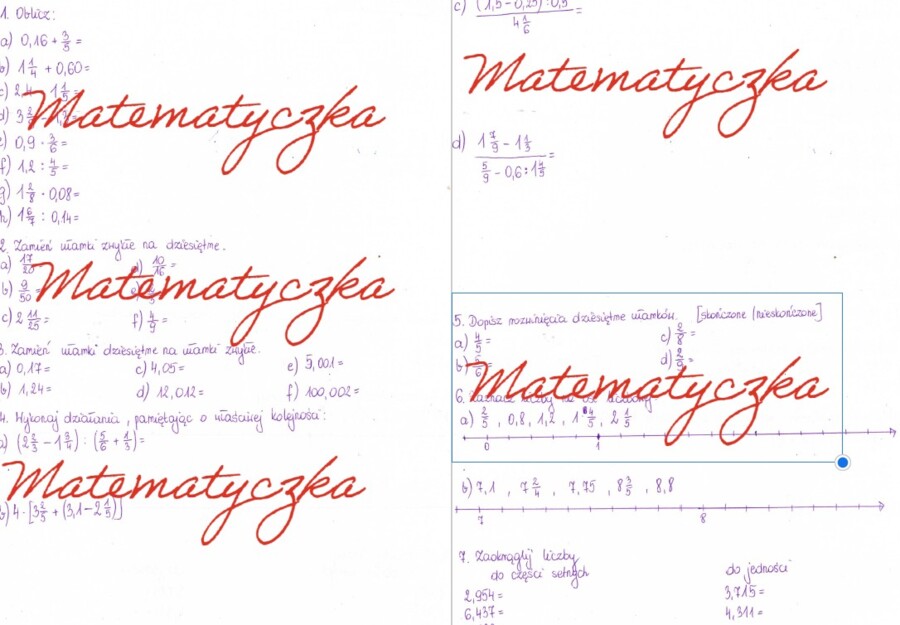 1. Oblicz:
a) 0,16 + 3/5 =
b) 1 1/4 + 0,60 =
c) 2,4 1 1/5 =
d) 3
e) 0,9 · 3/6 =
f) 1,2 : 4/5 =
g) 1 2/8 · 0,08 =
h) 1 6/7 : 0,14 =
Matematyczka
2. Zamień ułamki zwykłe na dziesiętne.
a) 17/20 d) 10/16 =
b) 9/50
c) 2 11/25 = f) 4/9 =
Matematyczka
3. Zamień ułamki dziesiętne na ułamki zwykłe.
a) 0,17 = c) 4,05 = e) 5,001 =
b) 1,24 = d) 12,012 = f) 100,002 =
4. Wykonaj działania, pamiętając o właściwej kolejności:
a) (2 2/3 - 1 3/4) : (5/6 + 1/3) =
Matematyczka
b) 4 · [3 2/5 + (3,1 - 2 1/5)]
c) (1,5 - 0,25) : 0,5 / 4 1/6 =
Matematyczka
d) 1 7/9 - 1 1/3 / 5/9 - 0,6 : 1 4/5 =
5. Dopisz rozwinięcia dziesiętne ułamków. [skończone/nieskończone]
a) 4/5 = c) 2/8 =
b) 5/6 = d)
Matematyczka
6. Zaznacz liczby na osi liczbowej
a) 2/5 , 0,8 , 1,2 , 1 4/5 , 2 1/5
0 1
b) 7,1 , 7 2/4 , 7,75 , 8 3/5 , 8,8
7 8
7. Zaokrąglij liczby
do części setnych do jedności
2,954 = 3,715 =
6,437 = 4,311 =